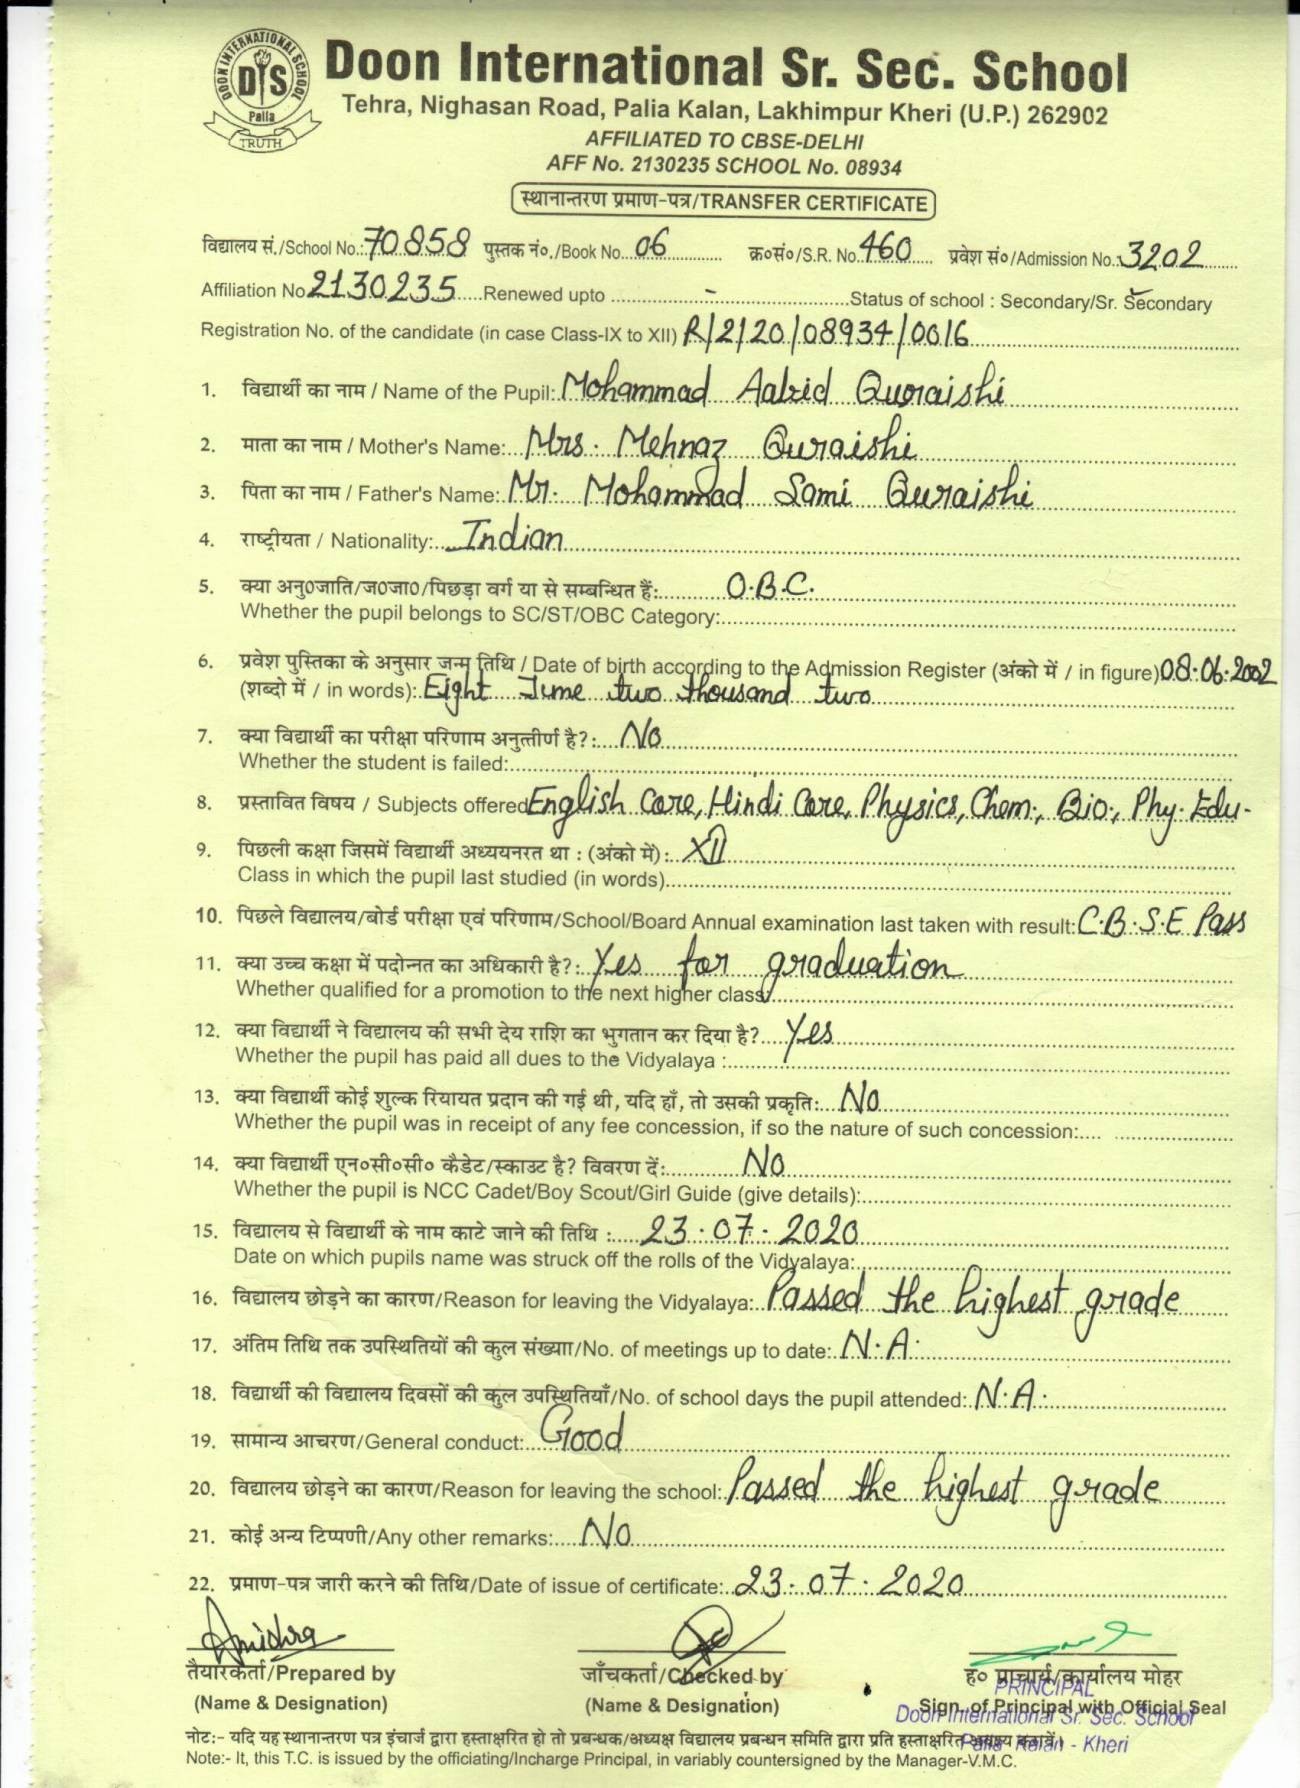 DOON INTERNATIONAL SCHOOL
DIS
Palia
TRUTH
Doon International Sr. Sec. School
Tehra, Nighasan Road, Palia Kalan, Lakhimpur Kheri (U.P.) 262902
AFFILIATED TO CBSE-DELHI
AFF No. 2130235 SCHOOL No. 08934
स्थानान्तरण प्रमाण-पत्र/TRANSFER CERTIFICATE
विद्यालय सं./School No.: 70858 पुस्तक नं०./Book No. 06 क्र०सं०/S.R. No. 460 प्रवेश सं०/Admission No.: 3202
Affiliation No. 2130235 Renewed upto - Status of school : Secondary/Sr. Secondary
Registration No. of the candidate (in case Class-IX to XII) R/2/20/08934/0016
1. विद्यार्थी का नाम / Name of the Pupil: Mohammad Aabid Quraishi
2. माता का नाम / Mother's Name: Mrs. Mehnaz Quraishi
3. पिता का नाम / Father's Name: Mr. Mohammad Sami Quraishi
4. राष्ट्रीयता / Nationality: Indian
5. क्या अनु0जाति/ज0जा0/पिछड़ा वर्ग या से सम्बन्धित हैं: O.B.C.
Whether the pupil belongs to SC/ST/OBC Category:
6. प्रवेश पुस्तिका के अनुसार जन्म तिथि / Date of birth according to the Admission Register (अंको में / in figure) 08.06.2002
(शब्दो में / in words): Eight June two thousand two
7. क्या विद्यार्थी का परीक्षा परिणाम अनुत्तीर्ण है?: No
Whether the student is failed:
8. प्रस्तावित विषय / Subjects offered English Core, Hindi Core, Physics, Chem., Bio., Phy. Edu.
9. पिछली कक्षा जिसमें विद्यार्थी अध्ययनरत था : (अंको में): XII
Class in which the pupil last studied (in words)
10. पिछले विद्यालय/बोर्ड परीक्षा एवं परिणाम/School/Board Annual examination last taken with result: C.B.S.E Pass
11. क्या उच्च कक्षा में पदोन्नत का अधिकारी है?: Yes for graduation
Whether qualified for a promotion to the next higher class:
12. क्या विद्यार्थी ने विद्यालय की सभी देय राशि का भुगतान कर दिया है? Yes
Whether the pupil has paid all dues to the Vidyalaya :
13. क्या विद्यार्थी कोई शुल्क रियायत प्रदान की गई थी, यदि हाँ, तो उसकी प्रकृति: No
Whether the pupil was in receipt of any fee concession, if so the nature of such concession:
14. क्या विद्यार्थी एन०सी०सी० कैडेट/स्काउट है? विवरण दें: No
Whether the pupil is NCC Cadet/Boy Scout/Girl Guide (give details):
15. विद्यालय से विद्यार्थी के नाम काटे जाने की तिथि : 23.07.2020
Date on which pupils name was struck off the rolls of the Vidyalaya:
16. विद्यालय छोड़ने का कारण/Reason for leaving the Vidyalaya: Passed the highest grade
17. अंतिम तिथि तक उपस्थितियों की कुल संख्या/No. of meetings up to date: N.A.
18. विद्यार्थी की विद्यालय दिवसों की कुल उपस्थितियाँ/No. of school days the pupil attended: N.A.
19. सामान्य आचरण/General conduct: Good
20. विद्यालय छोड़ने का कारण/Reason for leaving the school: Passed the highest grade
21. कोई अन्य टिप्पणी/Any other remarks: No
22. प्रमाण-पत्र जारी करने की तिथि/Date of issue of certificate: 23.07.2020
तैयारकर्ता/Prepared by जाँचकर्ता/Checked by ह० प्राचार्य/कार्यालय मोहर
PRINCIPAL
(Name & Designation) (Name & Designation) Sign. of Principal with Official Seal
Doon International Sr. Sec. School
Palia Kalan - Kheri
नोट:- यदि यह स्थानान्तरण पत्र इंचार्ज द्वारा हस्ताक्षरित हो तो प्रबन्धक/अध्यक्ष विद्यालय प्रबन्धन समिति द्वारा प्रति हस्ताक्षरित अवश्य करावें।
Note:- It, this T.C. is issued by the officiating/Incharge Principal, in variably countersigned by the Manager-V.M.C.